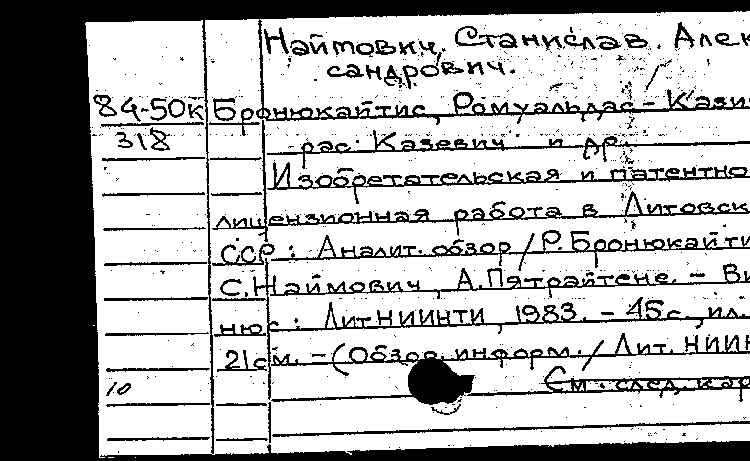 Наймович, Станислав Алек
сандрович.
84-50к Бронюкайтис, Ромуальдас-Кази
318 рас Казевич и др.
Изобретательская и патентно
лицензионная работа в Литовск
ССР: Аналит. обзор / Р. Бронюкайти
С. Наймович, А. Пятрайтене. - Ви
нюс: ЛитНИИНТИ, 1983. - 45с., ил.
21см. - (Обзор. информ. / Лит. НИИН
10 См. след. кар